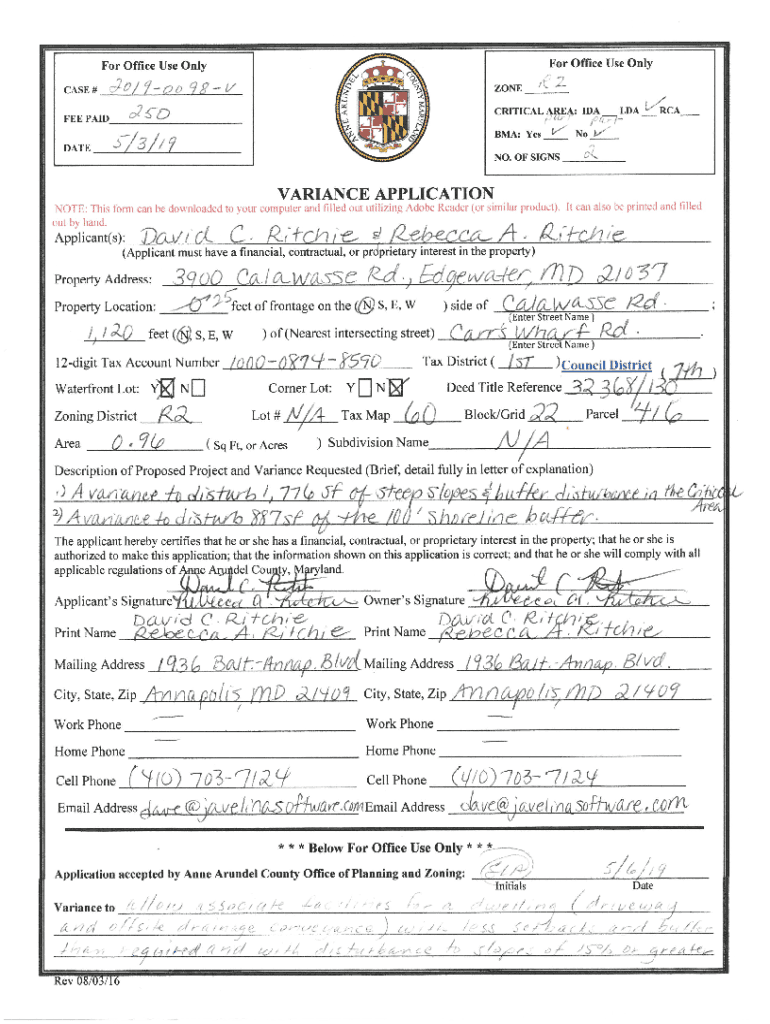 For Office Use Only
CASE # 2019-0098-V
FEE PAID 250
DATE 5/3/19
ANNE ARUNDEL COUNTY MARYLAND
For Office Use Only
ZONE R2
CRITICAL AREA: IDA LDA ✓ RCA
part part
BMA: Yes ✓ No ✓
NO. OF SIGNS 2
VARIANCE APPLICATION
NOTE: This form can be downloaded to your computer and filled out utilizing Adobe Reader (or similar product). It can also be printed and filled
out by hand.
Applicant(s): David C. Ritchie & Rebecca A. Ritchie
(Applicant must have a financial, contractual, or proprietary interest in the property)
Property Address: 3900 Calawasse Rd., Edgewater, MD 21037
Property Location: 25 feet of frontage on the (N, S, E, W ) side of Calawasse Rd. ;
(Enter Street Name )
1,120 feet (N, S, E, W ) of (Nearest intersecting street) Carrs Wharf Rd. .
(Enter Street Name )
12-digit Tax Account Number 1000-0874-8590 Tax District ( 1ST ) Council District ( 7th )
Waterfront Lot: Y☒ N☐ Corner Lot: Y ☐ N☒ Deed Title Reference 32368/130
Zoning District R2 Lot # N/A Tax Map 60 Block/Grid 22 Parcel 416
Area 0.96 ( Sq Ft, or Acres ) Subdivision Name N/A
Description of Proposed Project and Variance Requested (Brief, detail fully in letter of explanation)
1) A variance to disturb 1,776 sf of steep slopes & buffer disturbance in the Critical
Area
2) A variance to disturb 887 sf of the 100' shoreline buffer.
The applicant hereby certifies that he or she has a financial, contractual, or proprietary interest in the property; that he or she is
authorized to make this application; that the information shown on this application is correct; and that he or she will comply with all
applicable regulations of Anne Arundel County, Maryland.
David C. Ritchie David C. Ritchie
Applicant's Signature Rebecca A. Ritchie Owner's Signature Rebecca A. Ritchie
David C. Ritchie David C. Ritchie
Print Name Rebecca A. Ritchie Print Name Rebecca A. Ritchie
Mailing Address 1936 Balt.-Annap. Blvd Mailing Address 1936 Balt.-Annap. Blvd.
City, State, Zip Annapolis, MD 21409 City, State, Zip Annapolis, MD 21409
Work Phone — Work Phone —
Home Phone — Home Phone —
Cell Phone (410) 703-7124 Cell Phone (410) 703-7124
Email Address dave@javelinasoftware.com Email Address dave@javelinasoftware.com
* * * Below For Office Use Only * * *
Application accepted by Anne Arundel County Office of Planning and Zoning: 5/6/19
Initials Date
Variance to allow associate facilities for a dwelling (driveway
and offsite drainage conveyance) with less setbacks and buffer
than required and with disturbance to slopes of 15% or greater
Rev 08/03/16